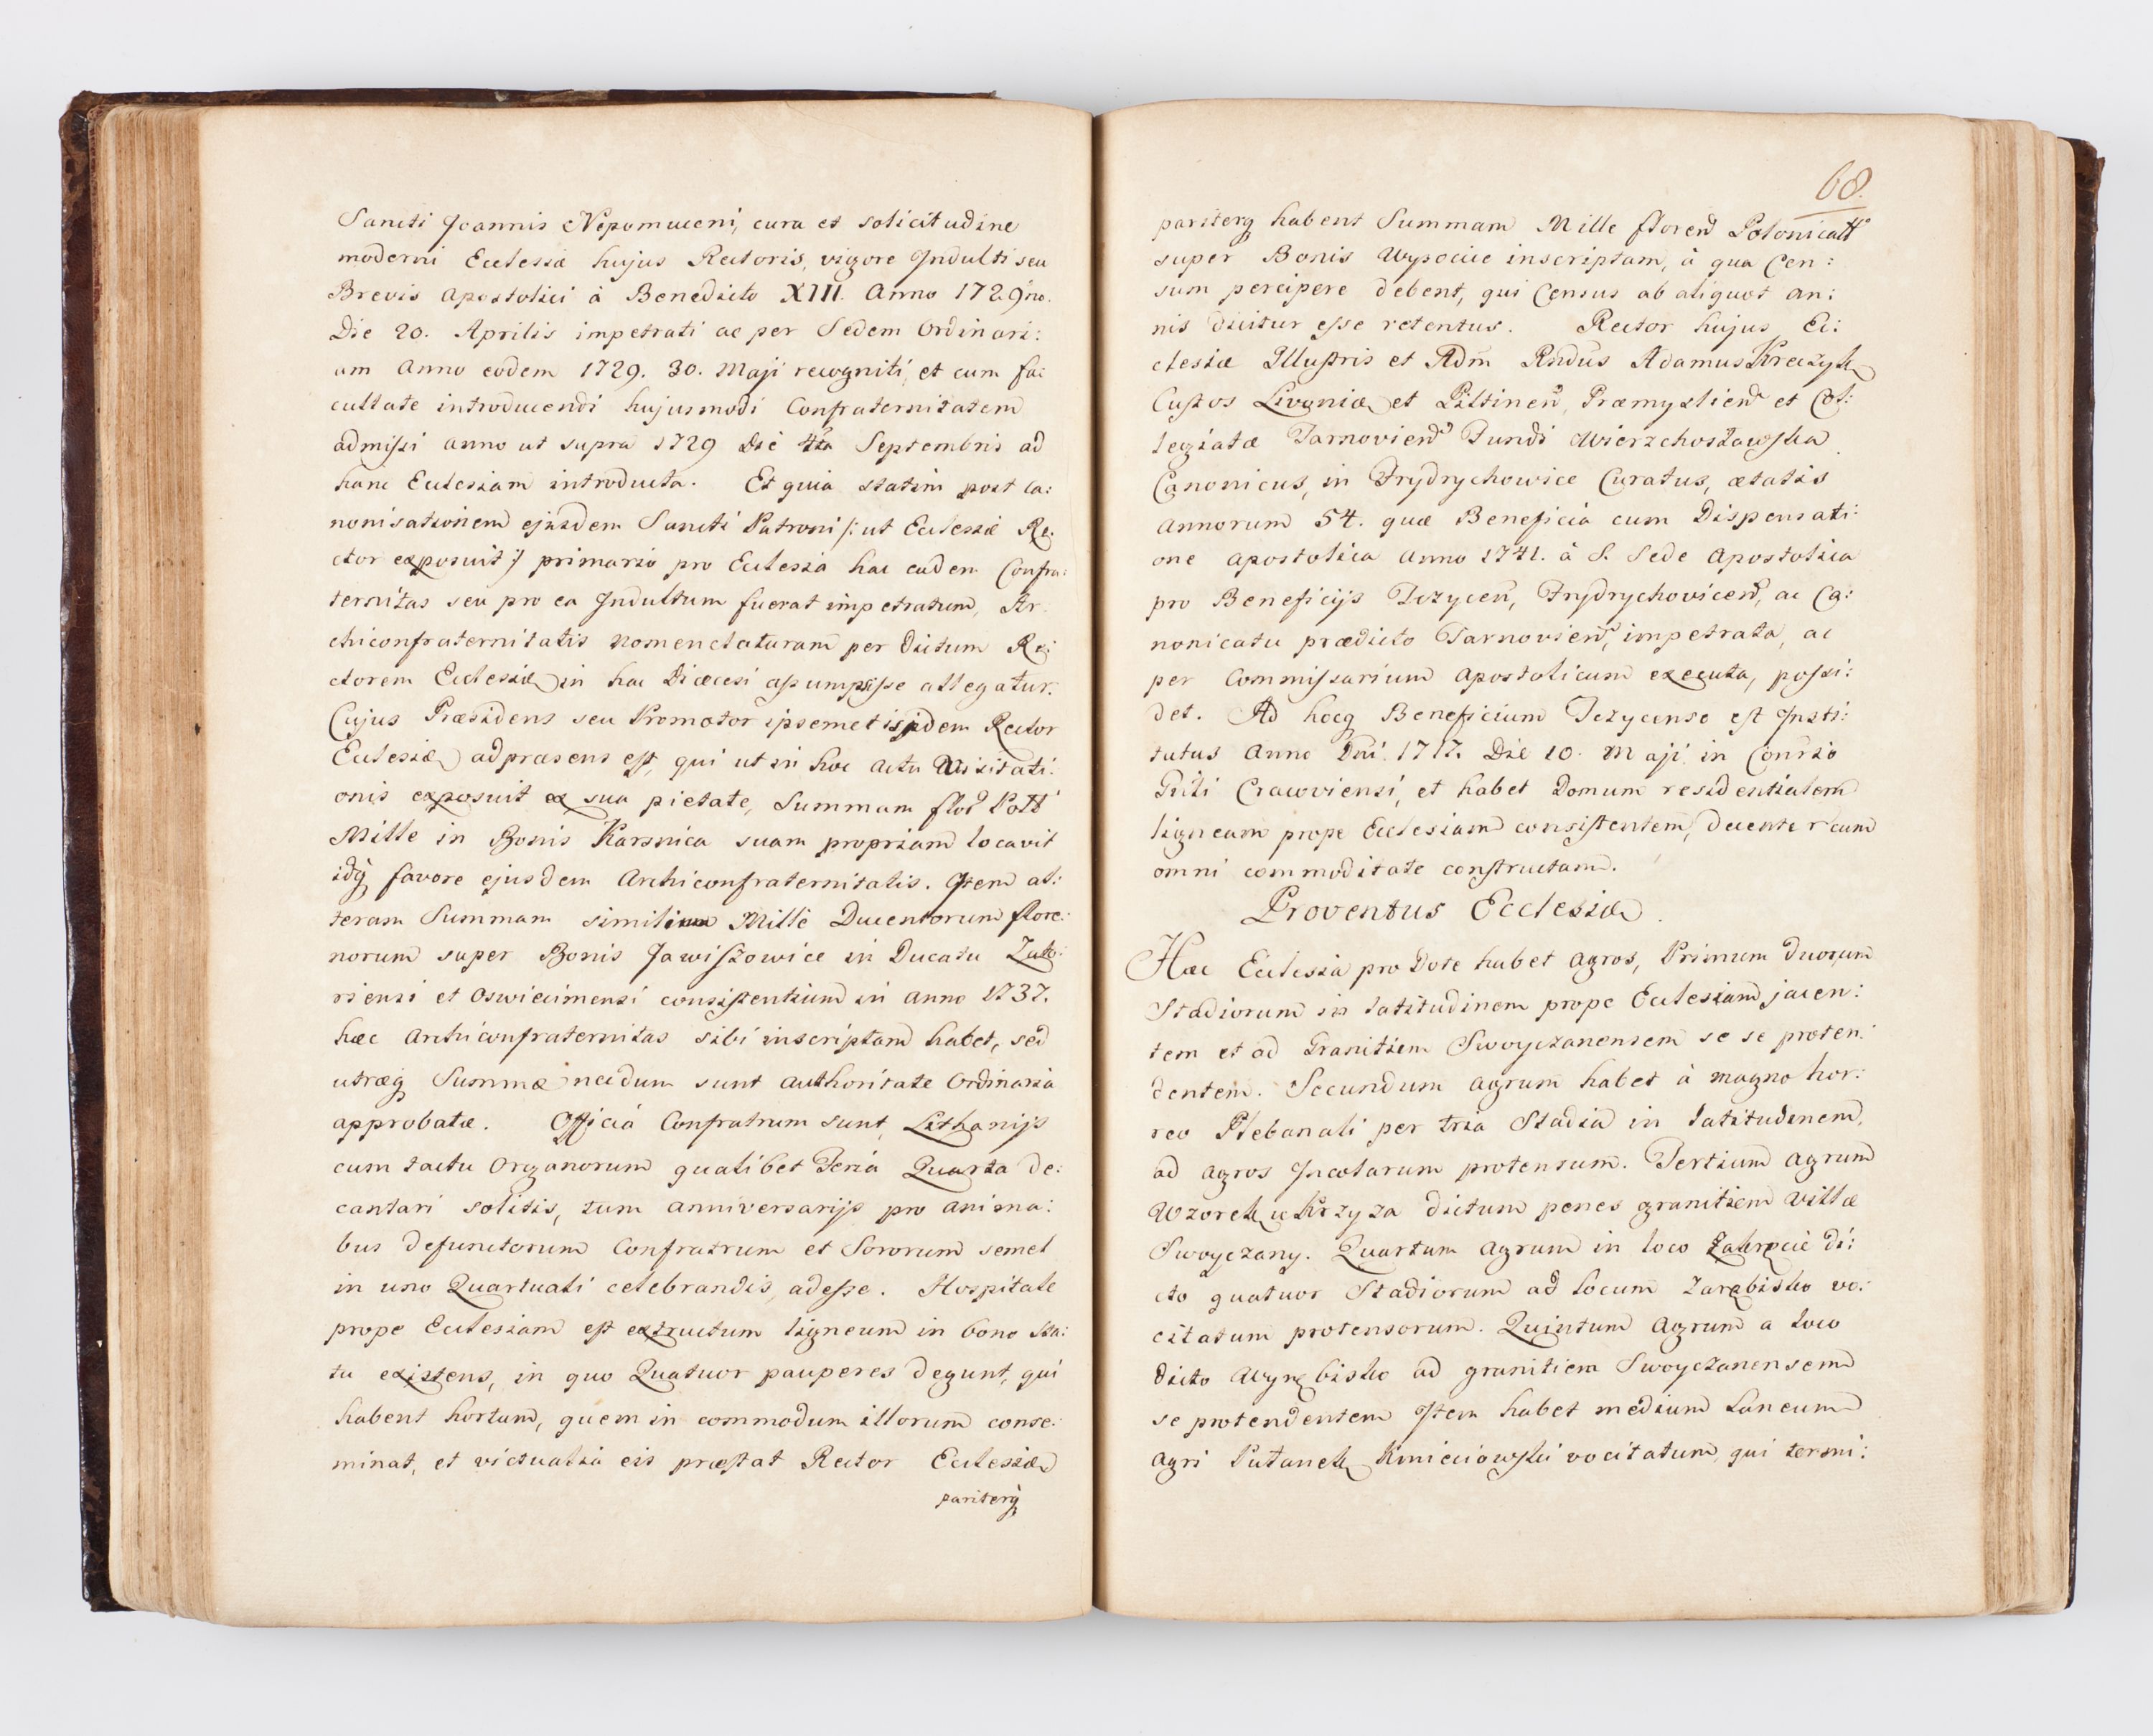 Sancti Joannis Nepomuceni, cura et solicitudine
moderni Ecclesiæ hujus Rectoris, vigore Indulti seu
Brevis Apostolici à Benedicto XIII. Anno 1729no.
Die 20. Aprilis impetrati ac per Sedem Ordinari:
am Anno eodem 1729. 30. Maji recogniti, et cum fa:
cultate introducendi hujusmodi Confraternitatem
admissi anno ut supra 1729 Die Septembris ad
hanc Ecclesiam introducta. Et quia statim post ca:
nonisationem ejusdem Sancti Patroni /: ut Ecclesiæ Re:
ctor exposuit :/ primario pro Ecclesia hac eadem Confra:
ternitas seu pro ea Indultum fuerat impetratum, Ar:
chiconfraternitatis nomenclaturam per dictum Re:
ctorem Ecclesiæ in hac Diœcesi assumpsisse allegatur.
Cujus Præsidens seu Promotor ipsemet isdem Rector
Ecclesiæ ad præsens est, qui ut in hoc actu Visitati:
onis exposuit ex sua pietate, Summam flor Poll
Mille in Bonis Karsnica suam propriam locavit
idq favore ejusdem Archiconfraternitatis. Item al:
teram Summam Mille Ducentorum flore:
norum super Bonis Jawiszowice in Ducatu Zato:
riensi et Oswiecimensi consistentium in Anno 1737.
hæc Archiconfraternitas sibi inscriptam habet, sed
utræq Summæ necdum sunt authoritate Ordinaria
approbatæ. Officia Confratrum sunt, Lithanijs
cum tactu Organorum qualibet Feria Quarta de:
cantari solitis, tum anniversarijs pro anima:
bus defunctorum Confratrum et Sororum semel
in uno Quartuali celebrandis, adesse. Hospitale
prope Ecclesiam est extructum ligneum in bono sta:
tu existens, in quo Quatuor pauperes degunt, qui
habent hortum, quem in commodum illorum conse:
minat, et victualia eis præstat Rector Ecclesiæ
pariterq
68.
pariterq habent Summam Mille floren Polonicall
super Bonis Wysocice inscriptam, à qua Cen:
sum percipere debent, qui Census ab aliquot an:
nis dicitur esse retentus. Rector hujus Ec:
clesiæ Illustris et Adm Rndus Adamus Kreczyk
Custos Livoniæ et Piltinen, Præmyslien et Col:
legiatæ Tarnovien Fundi Wierzchosławska
Canonicus, in Frydrychowice Curatus, ætatis
annorum 54. quæ Beneficia cum Dispensati:
one Apostolica anno 1741. à S. Sede Apostolica
pro Beneficijs Tczycen, Frydrychovicen, ac Ca:
nonicatu prædicto Tarnovien, impetrata, ac
per Commissarium Apostolicum executa, possi:
det. Ad hocq Beneficium Tczycense est Insti:
tutus Anno Dni. 1717. Die 10. Maji in Conrio
Cracoviensi, et habet Domum residentialem
ligneam prope Ecclesiam consistentem, decenter cum
omni commoditate constructam.
Proventus Ecclesiæ.
Hæc Ecclesia pro Dote habet agros, Primum duorum
Stadiorum in latitudinem prope Ecclesiam jacen:
tem et ad Granitiem Swoyczanensem se se proten:
dentem. Secundum agrum habet à magno hor:
reo Plebanali per tria Stadia in latitudinem,
ad agros Incolarum protensum. Tertium agrum
Wzorek u Krzyza dictum penes granitiem Villæ
Swoyczany. Quartum agrum in loco di:
cto quatuor Stadiorum ad locum Zarębisko vo:
citatum protensorum. Quintum Agrum a loco
dicto Wyrębisko ad granitiem Swoyczanensem
se protendentem Item habet medium Laneum
agri Putanek Kmieciowski vocitatum, qui termi: